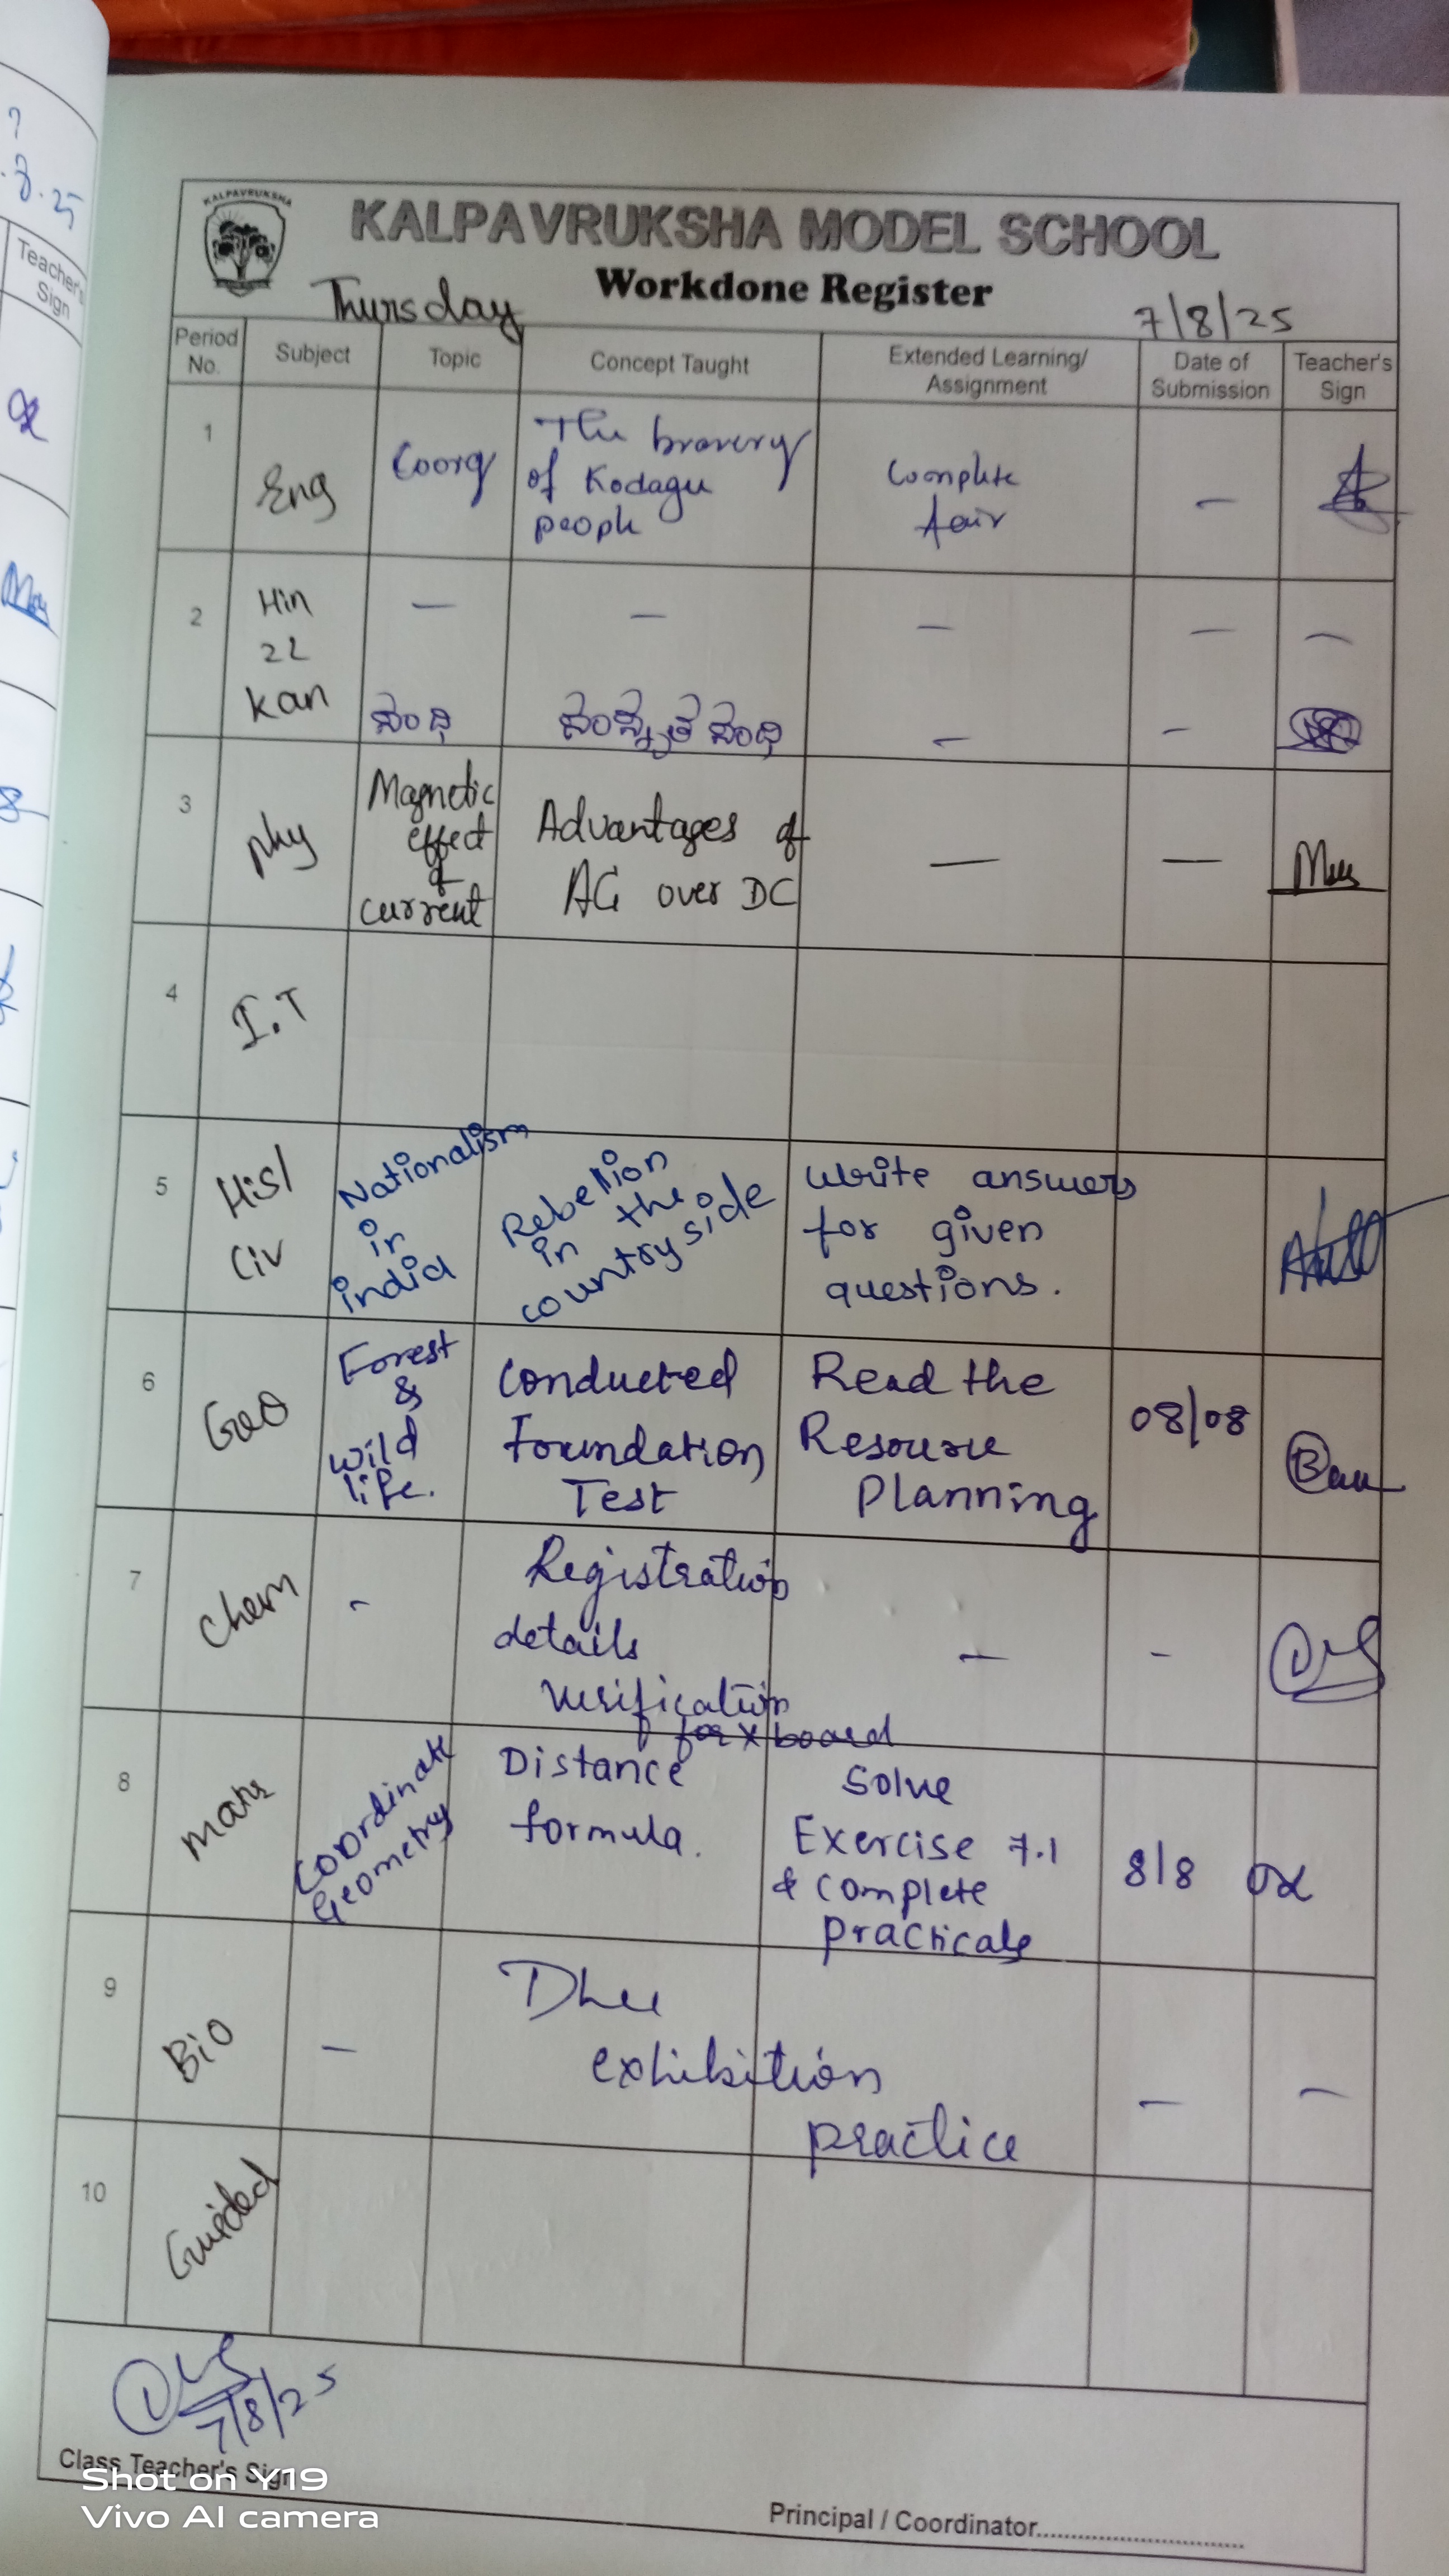 KALPAVRUKSHA
KALPAVRUKSHA MODEL SCHOOL
Workdone Register
Thursday 7/8/25
Period No. Subject Topic Concept Taught Extended Learning/ Assignment Date of Submission Teacher's Sign
1 Eng Coorg The bravery of Kodagu people Complete fair –
2 Hin – – – – –
2L
Kan ಸಂಧಿ ಸಂಸ್ಕೃತ ಸಂಧಿ – –
3 Phy Magnetic effect of current Advantages of AC over DC – –
4 I.T
5 His/ Civ Nationalism in india Rebellion in the countryside Write answers for given questions.
6 Geo Forest & wild life. Conducted Foundation Test Read the Resource Planning 08/08
7 Chem - Registration details verification for X board – -
8 Mats Coordinate Geometry Distance formula. Solve Exercise 7.1 & complete practicals 8/8
9 Bio – exhibition practice – –
10 Guided
7/8/25
Class Teacher's Sign
Principal / Coordinator
Shot on Y19
Vivo AI camera
?
.8.25
Teacher's
Sign